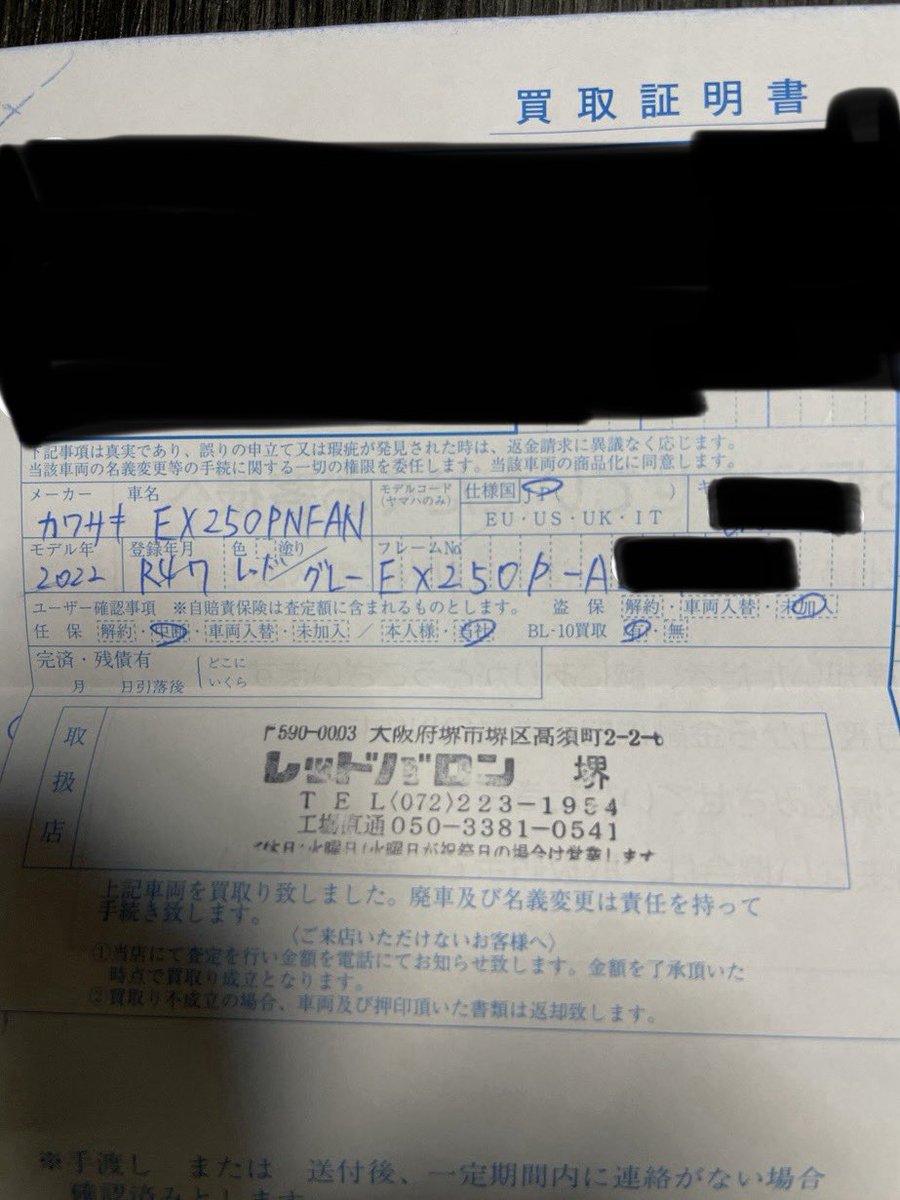 買取証明書
下記事項は真実であり、誤りの申立て又は瑕疵が発見された時は、返金請求に異議なく応じます。
当該車両の名義変更等の手続に関する一切の権限を委任します。当該車両の商品化に同意します。
メーカー 車名 モデルコード (ヤマハのみ) 仕様国 (JP )
カワサキ EX250PNFAN EU・US・UK・IT
モデル年 登録年月 色 塗り フレームNo
2022 R4 7 レッド/グレー EX250P-A
ユーザー確認事項 ※自賠責保険は査定額に含まれるものとします。 盗 保 解約・車両入替・未加入
任 保 解約・中断・車両入替・未加入 / 本人様・当社 BL-10買取 有・無
完済・残債有 どこに
月 日引落後 いくら
取扱店
〒590-0003 大阪府堺市堺区高須町2-2-6
レッドバロン 堺
TEL(072)223-1954
工場直通050-3381-0541
定休日:火曜日(火曜日が祝祭日の場合は営業します
上記車両を買取り致しました。廃車及び名義変更は責任を持って
手続き致します。
〈ご来店いただけないお客様へ〉
①当店にて査定を行い金額を電話にてお知らせ致します。金額を了承頂いた
時点で買取り成立となります。
②買取り不成立の場合、車両及び押印頂いた書類は返却致します。
※手渡し または 送付後、一定期間内に連絡がない場合
確認済みとします